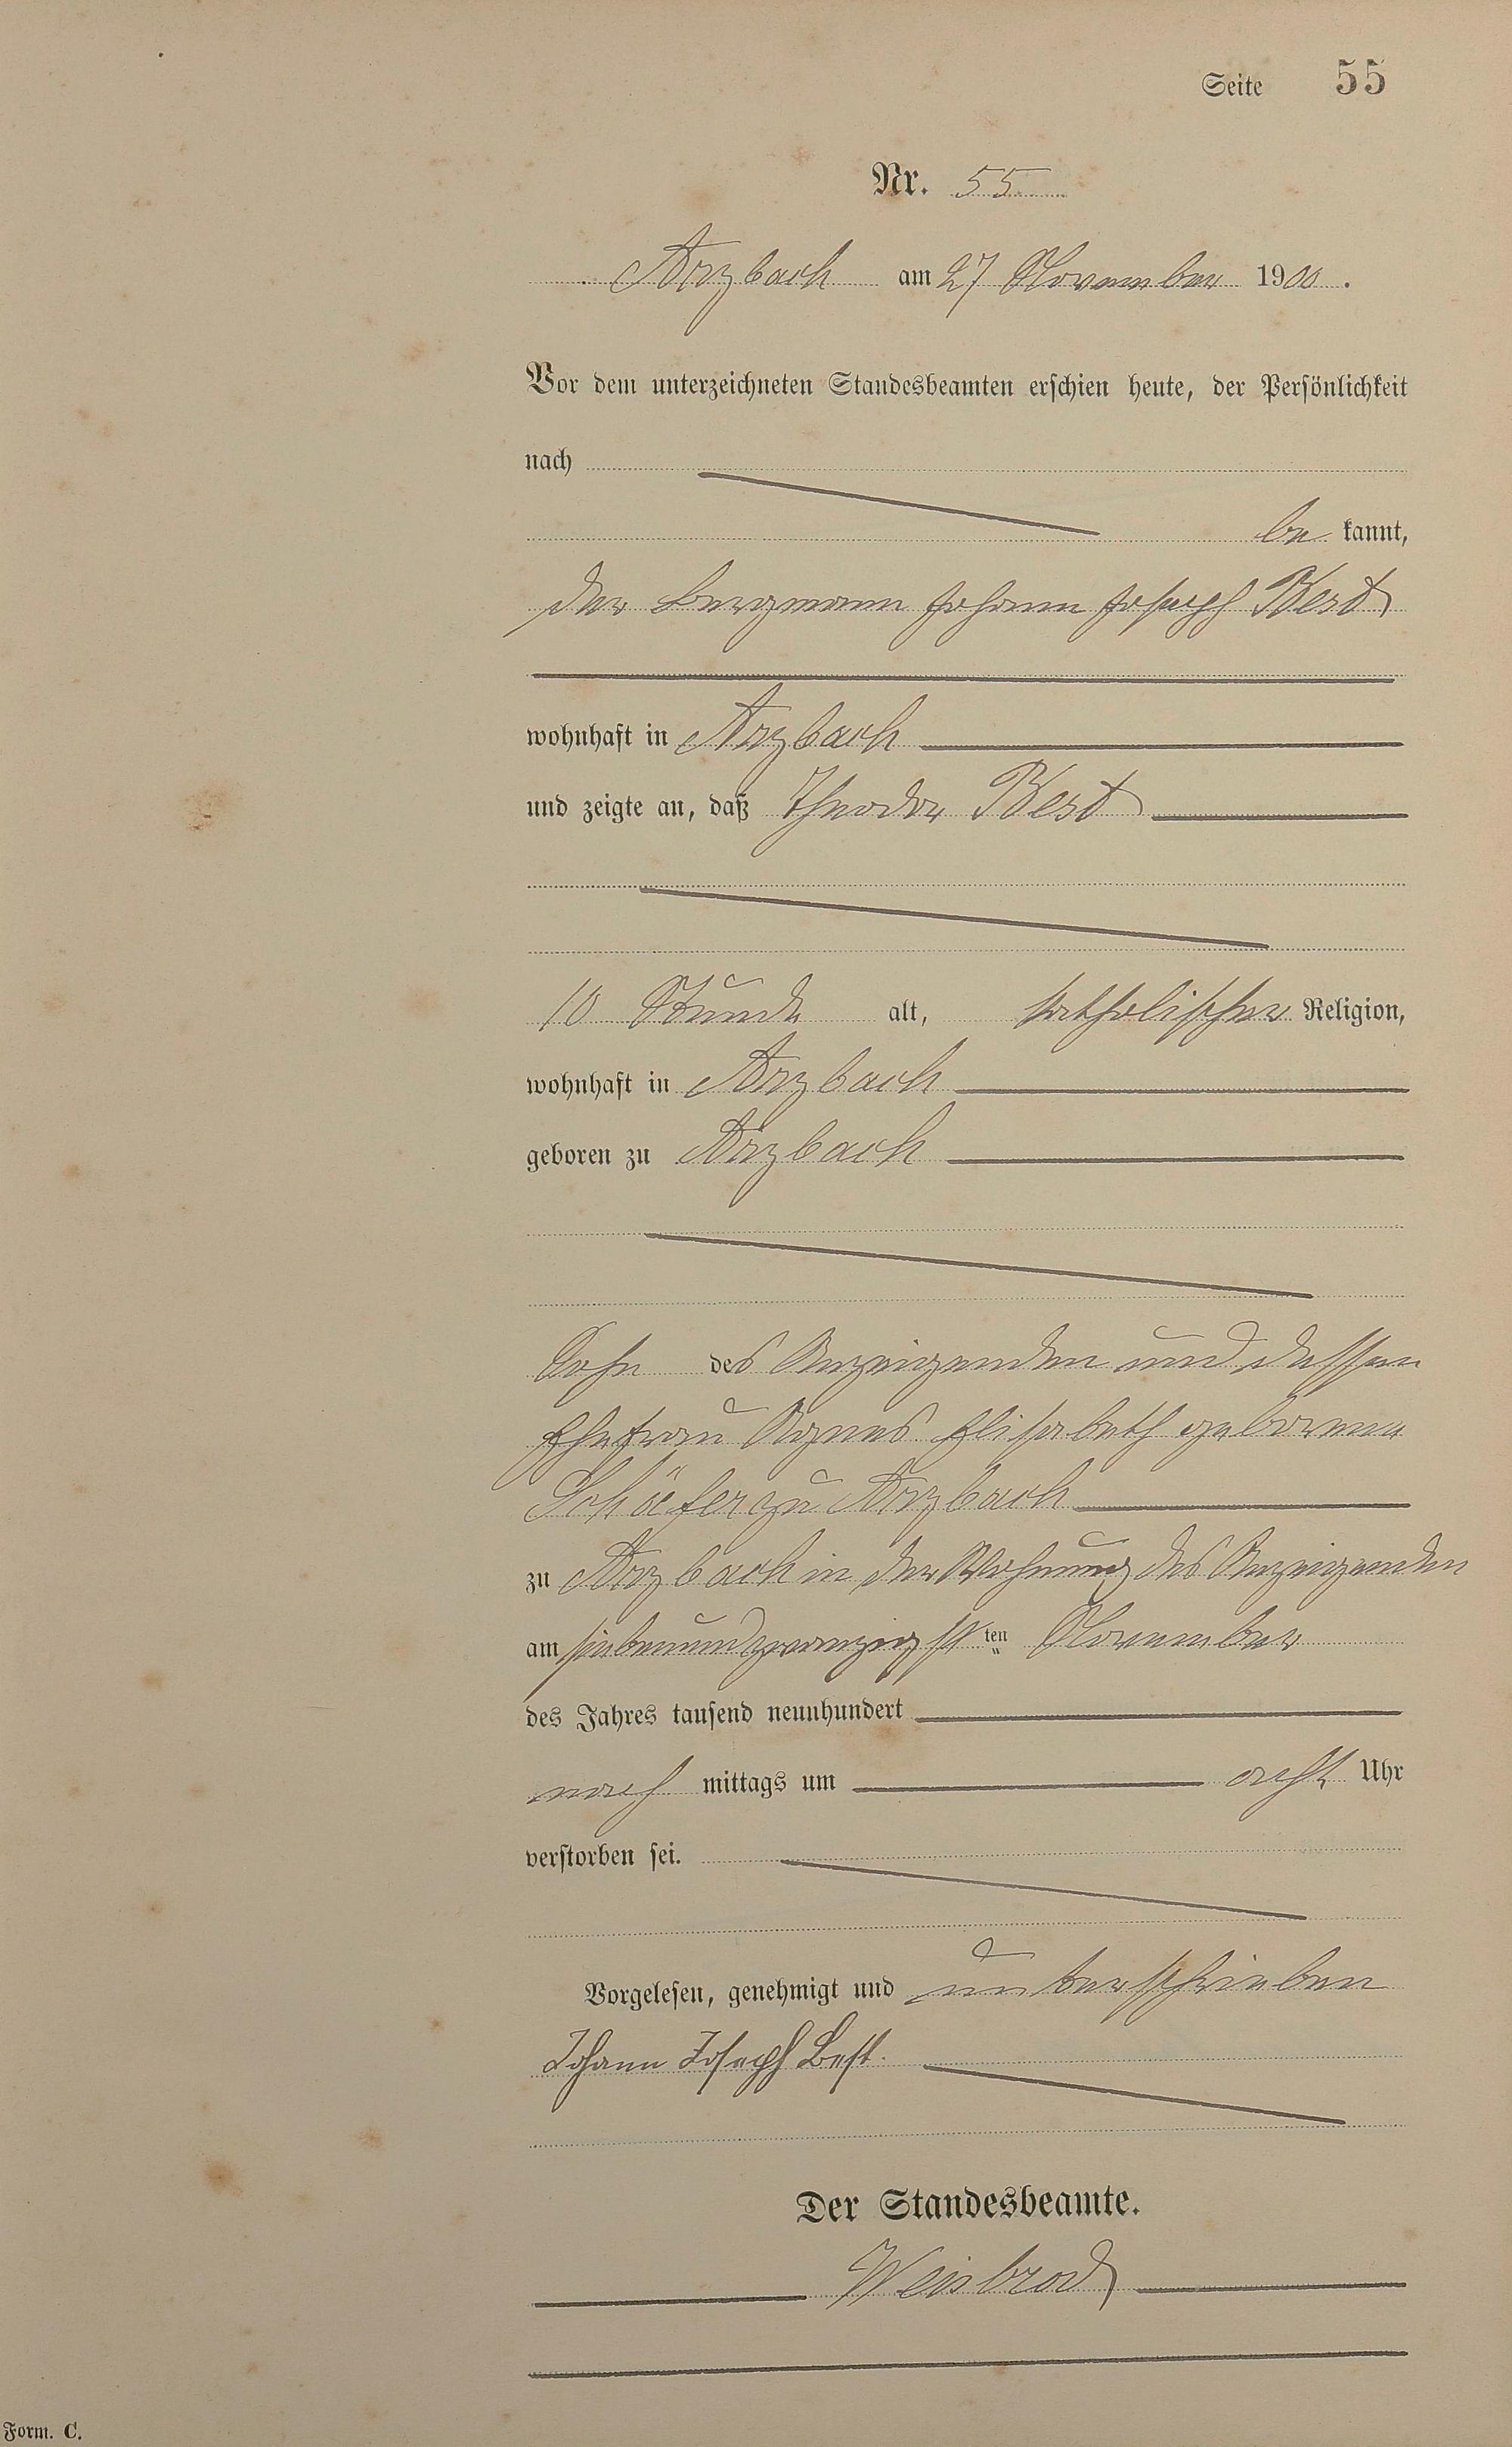 Seite 55
Nr. 55
Arzbach am 27 November 1900.
Vor dem unterzeichneten Standesbeamten erschien heute, der Persönlichkeit
nach
be kannt,
der Bergmann Johann Joseph Best
wohnhaft in Arzbach
und zeigte an, daß Theodor Best
10 Stunde alt, katholischer Religion,
wohnhaft in Arzbach
geboren zu Arzbach
Sohn des Anzeigenden und dessen
Ehefrau Agnes Elisabeth geborene
Schäfer zu Arzbach
zu Arzbach in der Wohnung des Anzeigenden
am siebenundzwanzigsten November
des Jahres tausend neunhundert
nach mittags um acht Uhr
verstorben sei.
Vorgelesen, genehmigt und unterschrieben
Johann Joseph Best.
Der Standesbeamte.
Weisbrod
Form. C.